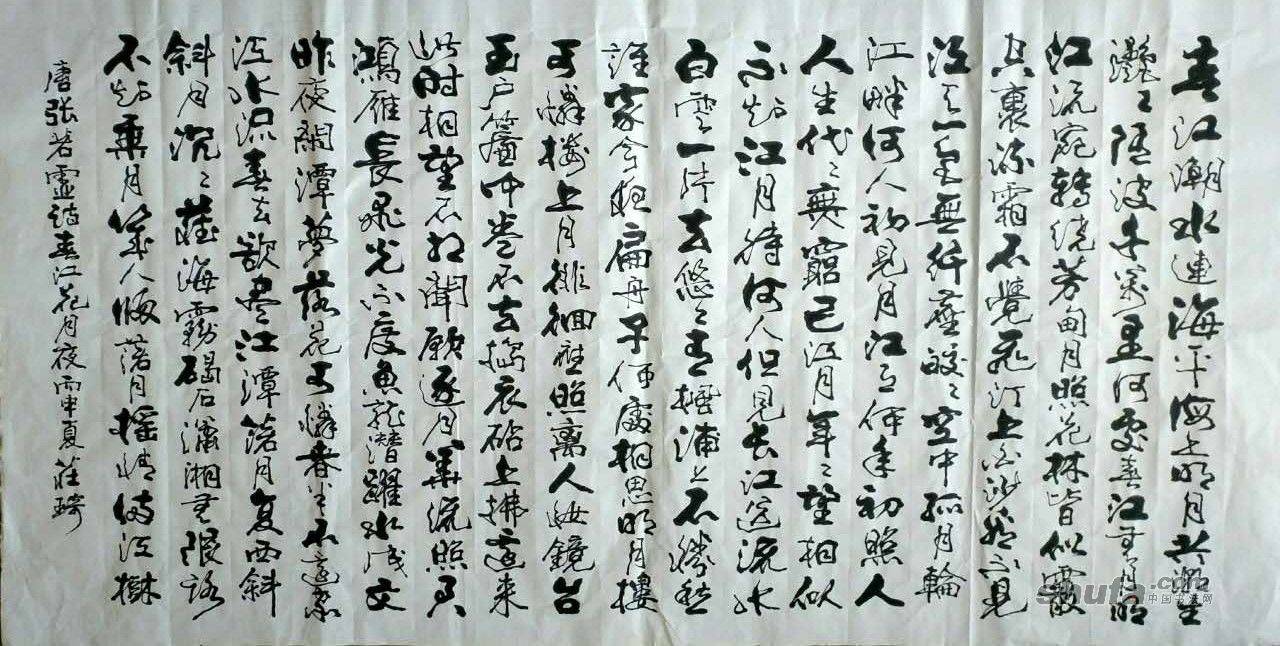 春江潮水连海平海上明月共潮生
灔〻随波千万里何处春江无月明
江流宛转绕芳甸月照花林皆似霰
空裏流霜不觉飛汀上白沙看不見
江天一色無纤塵皎〻空中孤月輪
江畔何人初見月江月何年初照人
人生代〻無窮已江月年〻望相似
不知江月待何人但見长江送流水
白雲一片去悠〻青枫浦上不勝愁
誰家今夜扁舟子何處相思明月樓
可憐楼上月徘徊應照离人妝鏡台
玉户簾中卷不去擣衣砧上拂還来
此时相望不相聞願逐月華流照君
鴻雁長飛光不度魚龍潜躍水成文
昨夜閑潭夢落花可憐春半不還家
江水流春去欲盡江潭落月复西斜
斜月沉〻藏海霧碣石瀟湘无限路
不知乘月幾人歸落月摇情满江樹
唐張若虚詩春江花月夜丙申夏莊琦
shufa.com
中国书法网